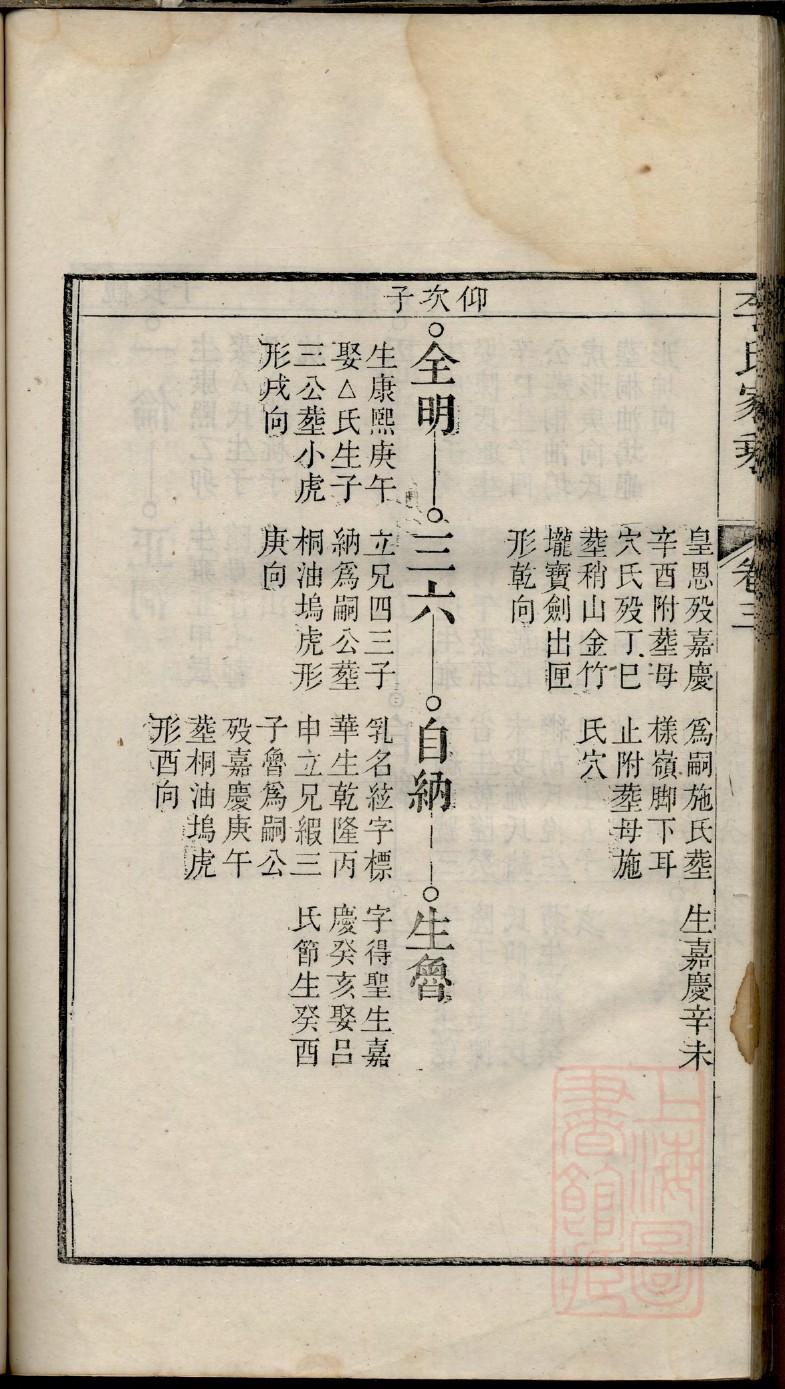 李氏家乘
卷三
仰次子
皇恩殁嘉慶
辛酉附塟母
穴氏殁丁巳
塟稍山金竹
壠寶劍出匣
形乾向
爲嗣施氏塟
樣嶺脚下耳
止附塟母施
氏穴
生嘉慶辛未
全明
生康熙庚午
娶△氏生子
三公塟小虎
形戌向
三六
立兄四三子
納爲嗣公塟
桐油塢虎形
庚向
自納
乳名絃字標
華生乾隆丙
申立兄緞三
子魯爲嗣公
殁嘉慶庚午
塟桐油塢虎
形酉向
生魯
字得聖生嘉
慶癸亥娶呂
氏節生癸酉
上海圖
書館藏